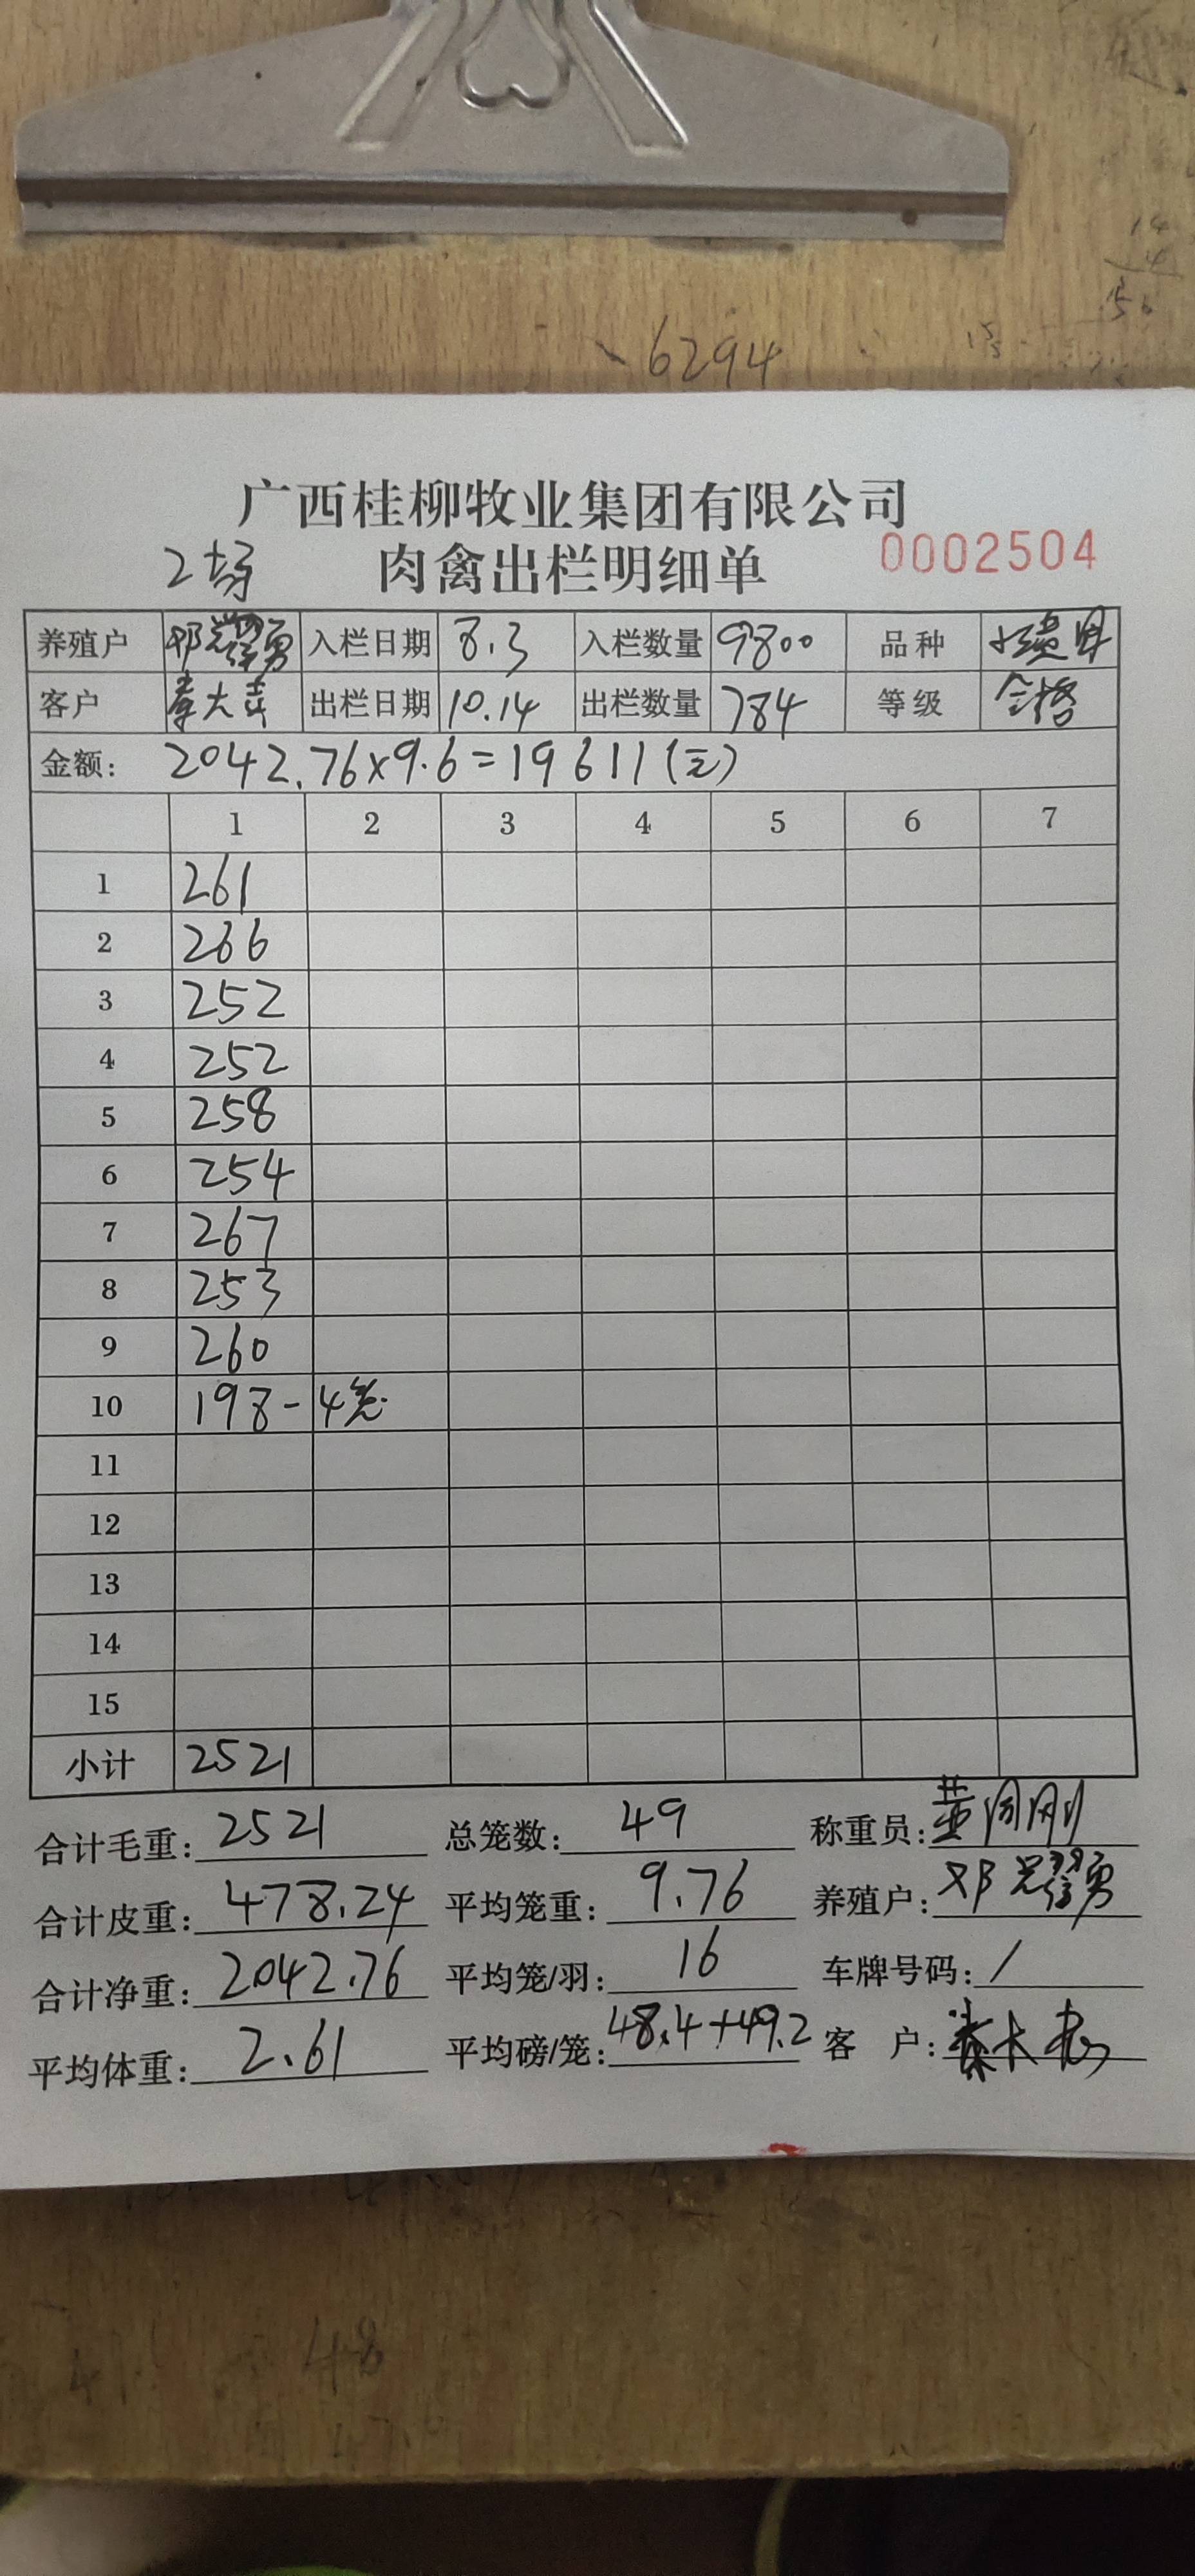 6294
广西桂柳牧业集团有限公司
2场 肉禽出栏明细单 0002504
养殖户 邓耀勇 入栏日期 8.3 入栏数量 9800 品种
客户 秦大 出栏日期 10.14 出栏数量 784 等级 合格
金额: 2042.76×9.6=19611(元)
1 2 3 4 5 6 7
1 261
2 266
3 252
4 252
5 258
6 254
7 267
8 253
9 260
10 198-4笼
11
12
13
14
15
小计 2521
合计毛重: 2521 总笼数: 49 称重员: 黄同刚
合计皮重: 478.24 平均笼重: 9.76 养殖户: 邓耀勇
合计净重: 2042.76 平均笼/羽: 16 车牌号码: /
平均体重: 2.61 平均磅/笼: 48.4+49.2 客 户:
48